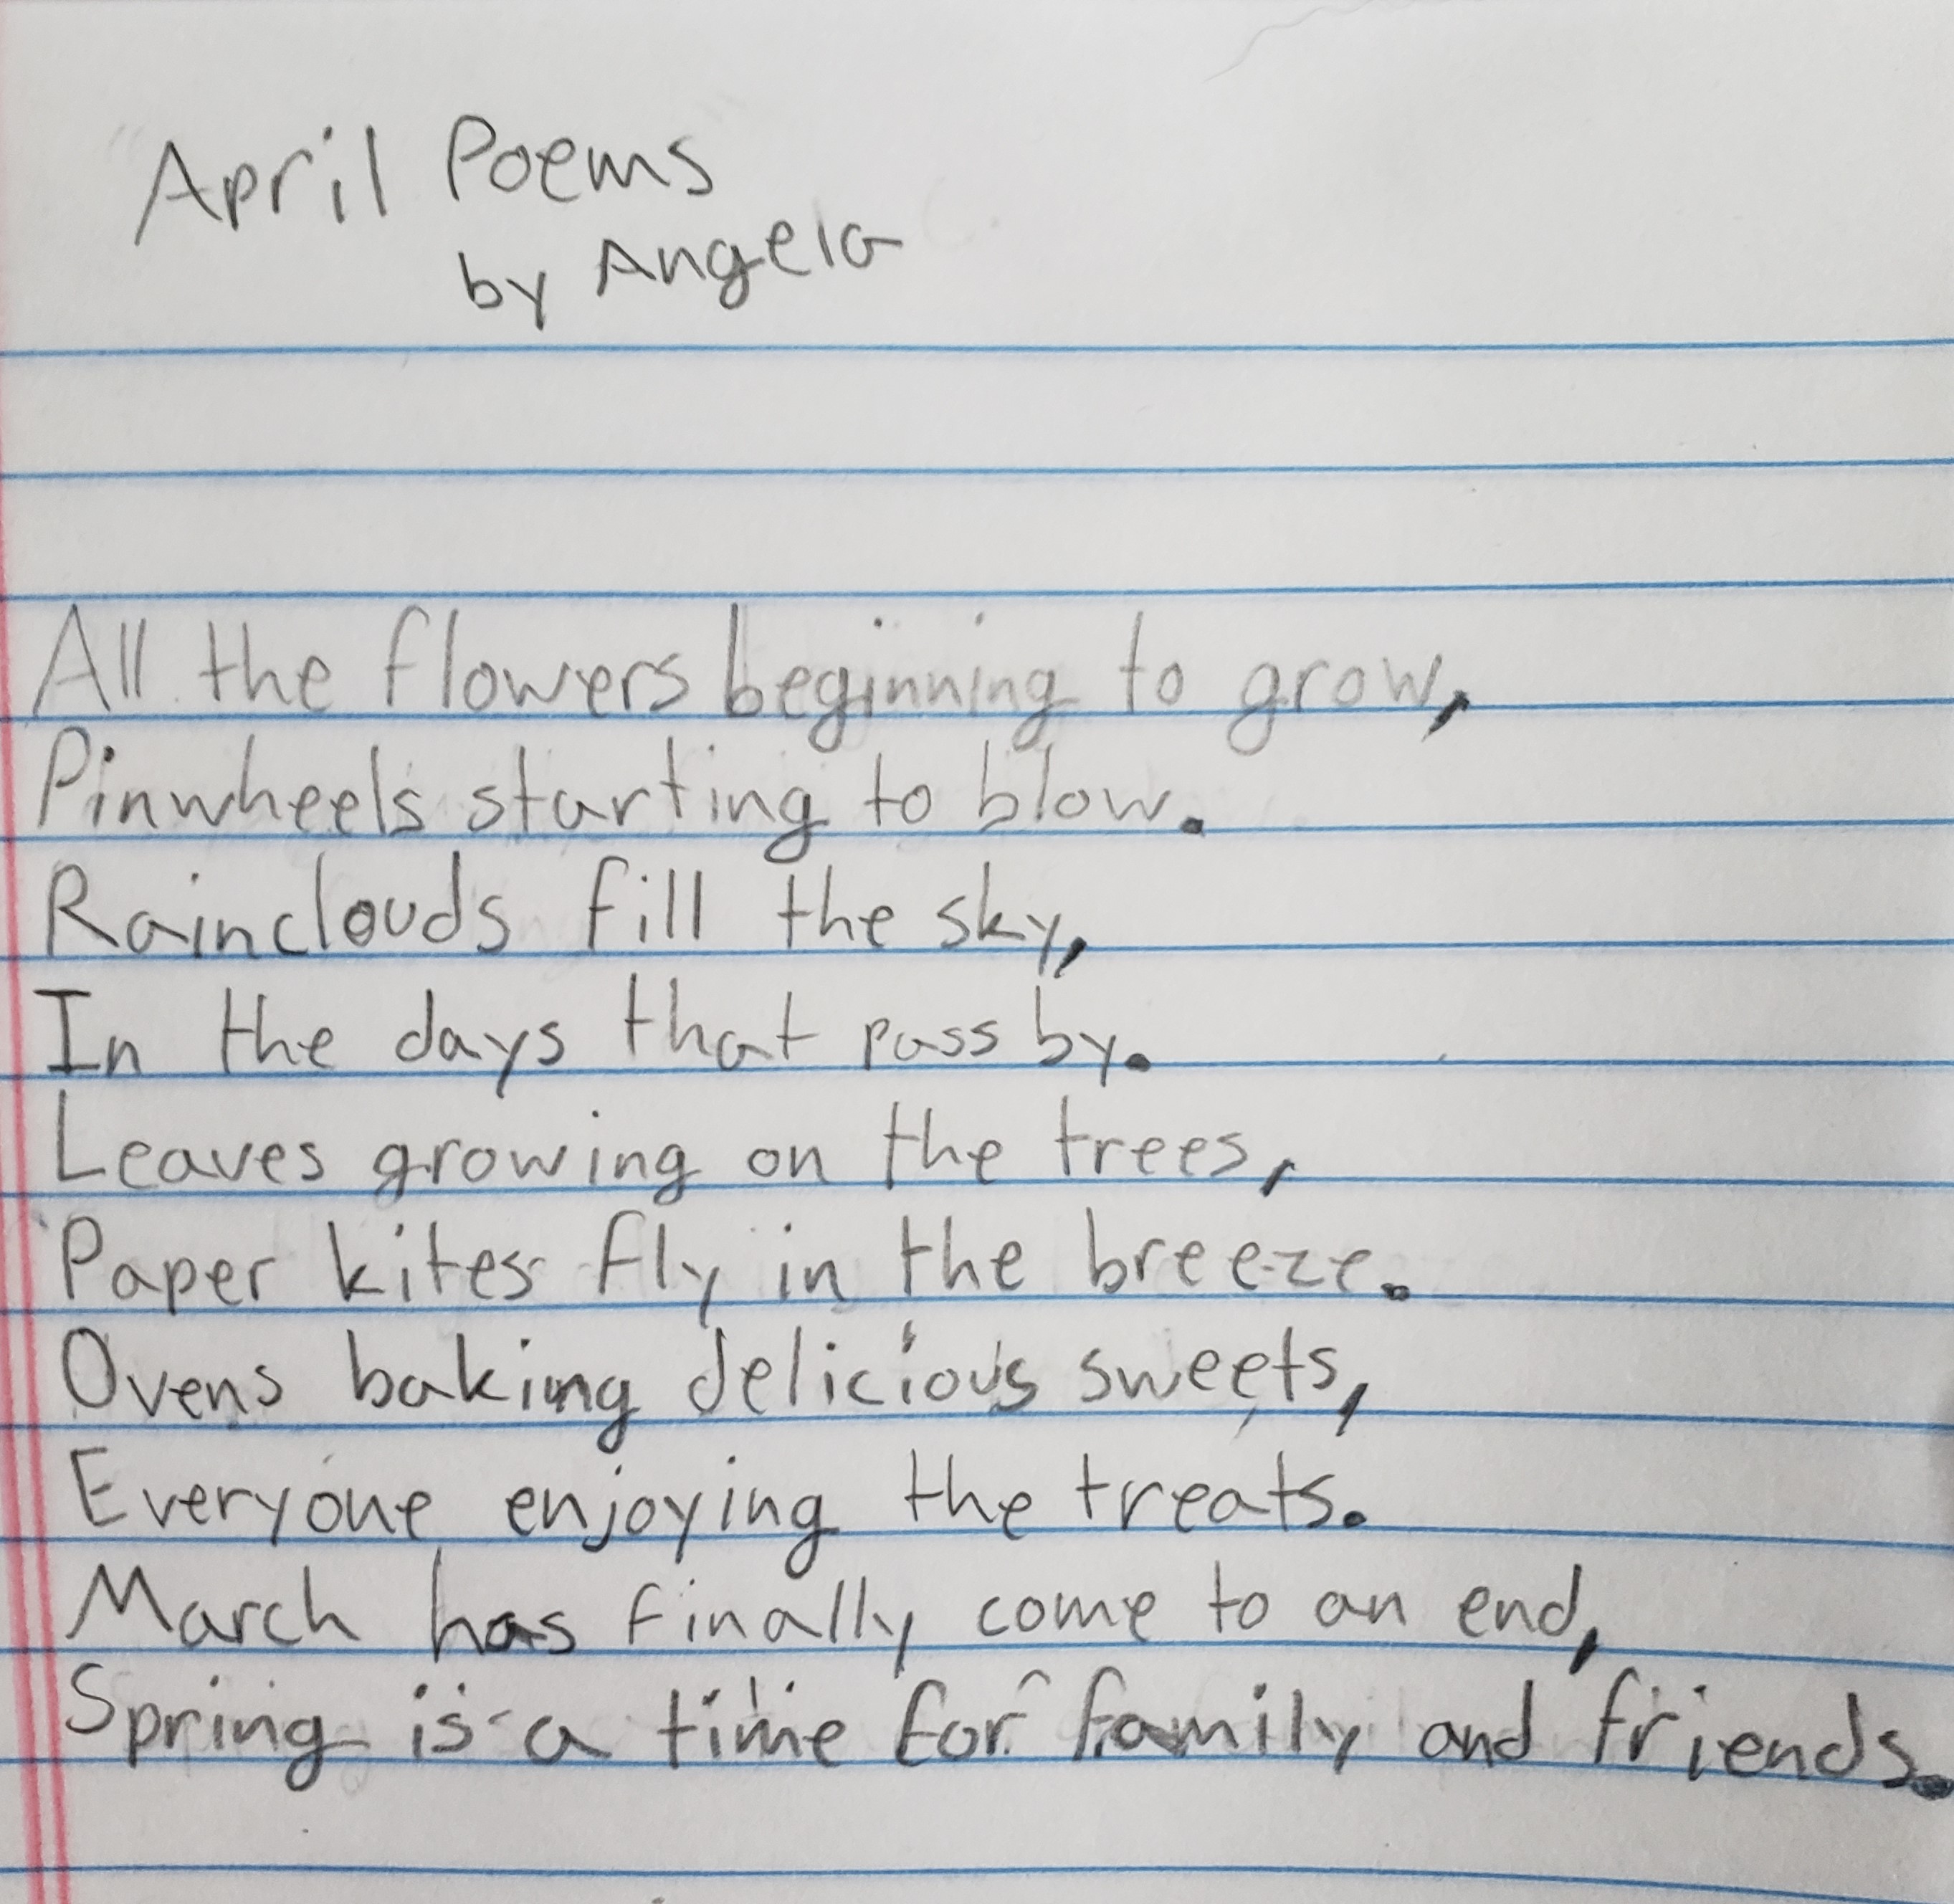 April Poems
by Angela
All the flowers beginning to grow,
Pinwheels starting to blow.
Rainclouds fill the sky,
In the days that pass by.
Leaves growing on the trees,
Paper kites fly in the breeze.
Ovens baking delicious sweets,
Everyone enjoying the treats.
March has finally come to an end,
Spring is a time for family and friends.